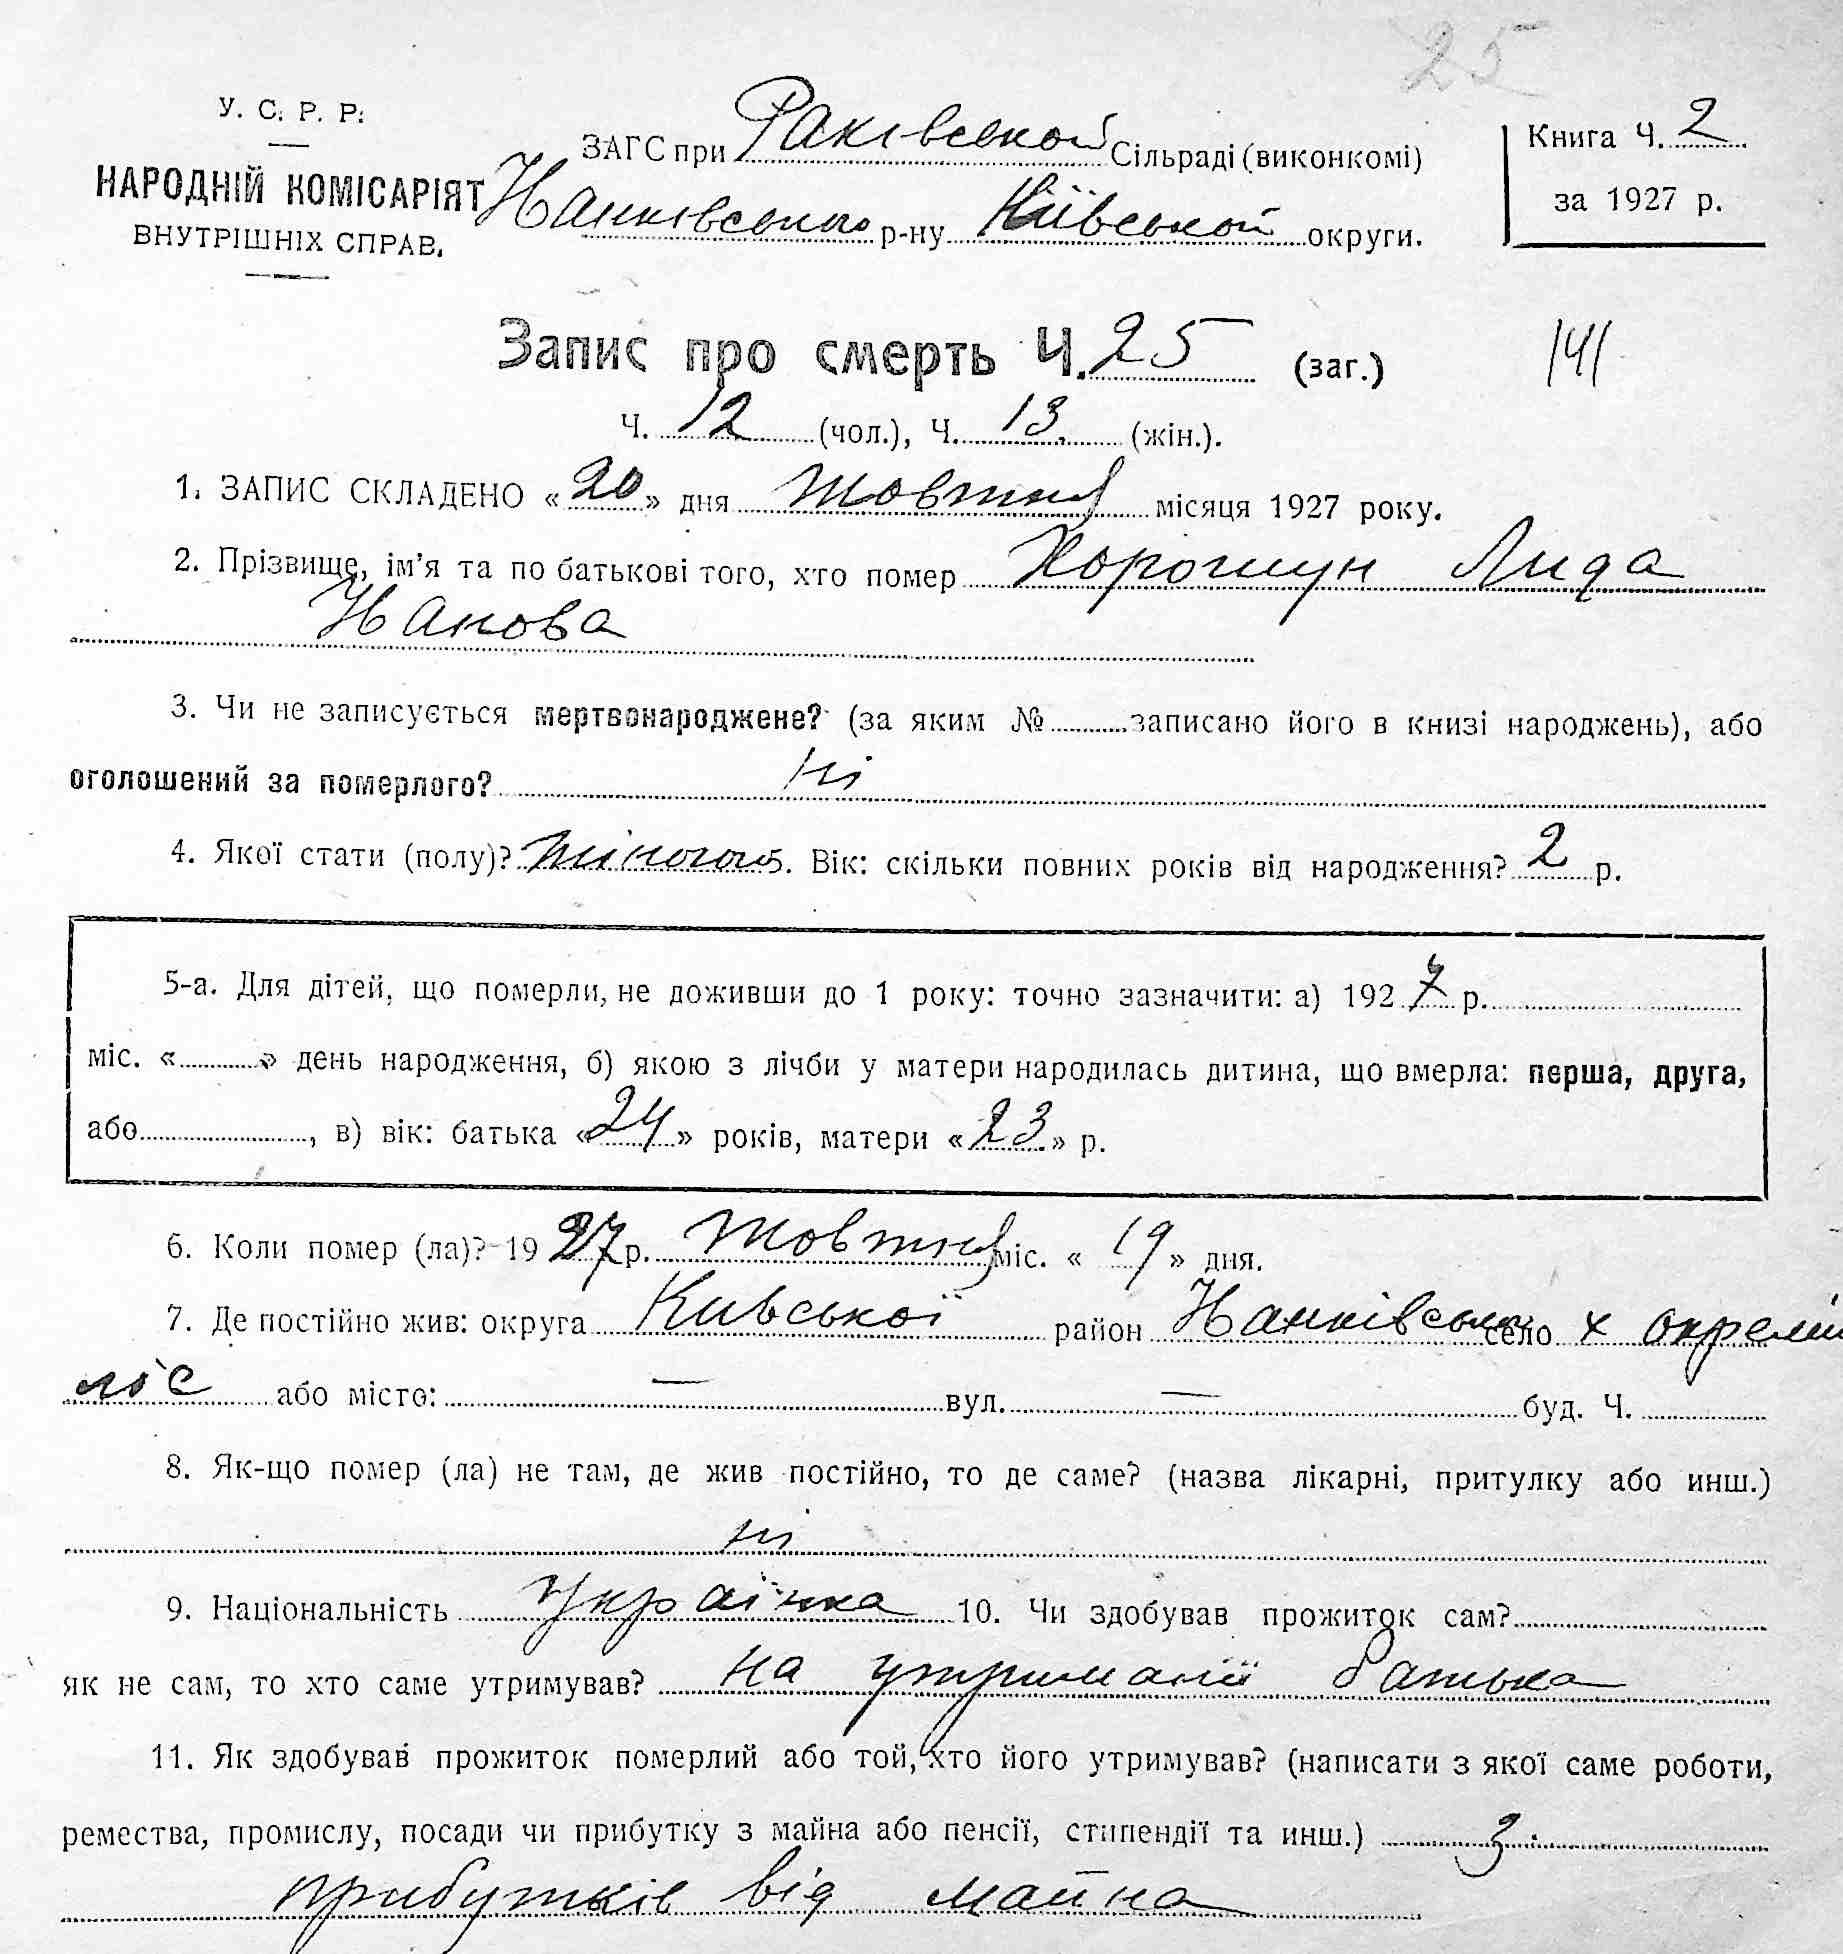 25
У. С. Р. Р.
НАРОДНІЙ КОМІСАРІЯТ
ВНУТРІШНІХ СПРАВ.
ЗАГС при Раківської Сільраді (виконкомі)
Иванківського р-ну Київської округи.
Книга Ч. 2
за 1927 р.
Запис про смерть Ч. 25 (заг.)
141
Ч. 12 (чол.), Ч. 13 (жін.).
1. ЗАПИС СКЛАДЕНО «20» дня жовтня місяця 1927 року.
2. Прізвище, ім'я та по батькові того, хто помер Хорошун Лида
3. Чи не записується мертвонароджене? (за яким № записано його в книзі народжень), або
оголошений за померлого? ні
4. Якої стати (полу)? жіночої. Вік: скільки повних років від народження? 2 р.
5-а. Для дітей, що померли, не доживши до 1 року: точно зазначити: а) 1927 р.
міс. « » день народження, б) якою з лічби у матери народилась дитина, що вмерла: перша, друга,
або , в) вік: батька «24» років, матери «23» р.
6. Коли помер (ла)? 1927 р. жовтня міс. «19» дня.
7. Де постійно жив: округа Кивської район Иванківськ село х окремий
ліс або місто: — вул. — буд. Ч.
8. Як-що помер (ла) не там, де жив постійно, то де саме? (назва лікарні, притулку або инш.)
ні
9. Національність Українка 10. Чи здобував прожиток сам?
як не сам, то хто саме утримував? на утриманії батька
11. Як здобував прожиток померлий або той, хто його утримував? (написати з якої саме роботи,
ремества, промислу, посади чи прибутку з майна або пенсії, стипендії та инш.) з
прибутків від майна